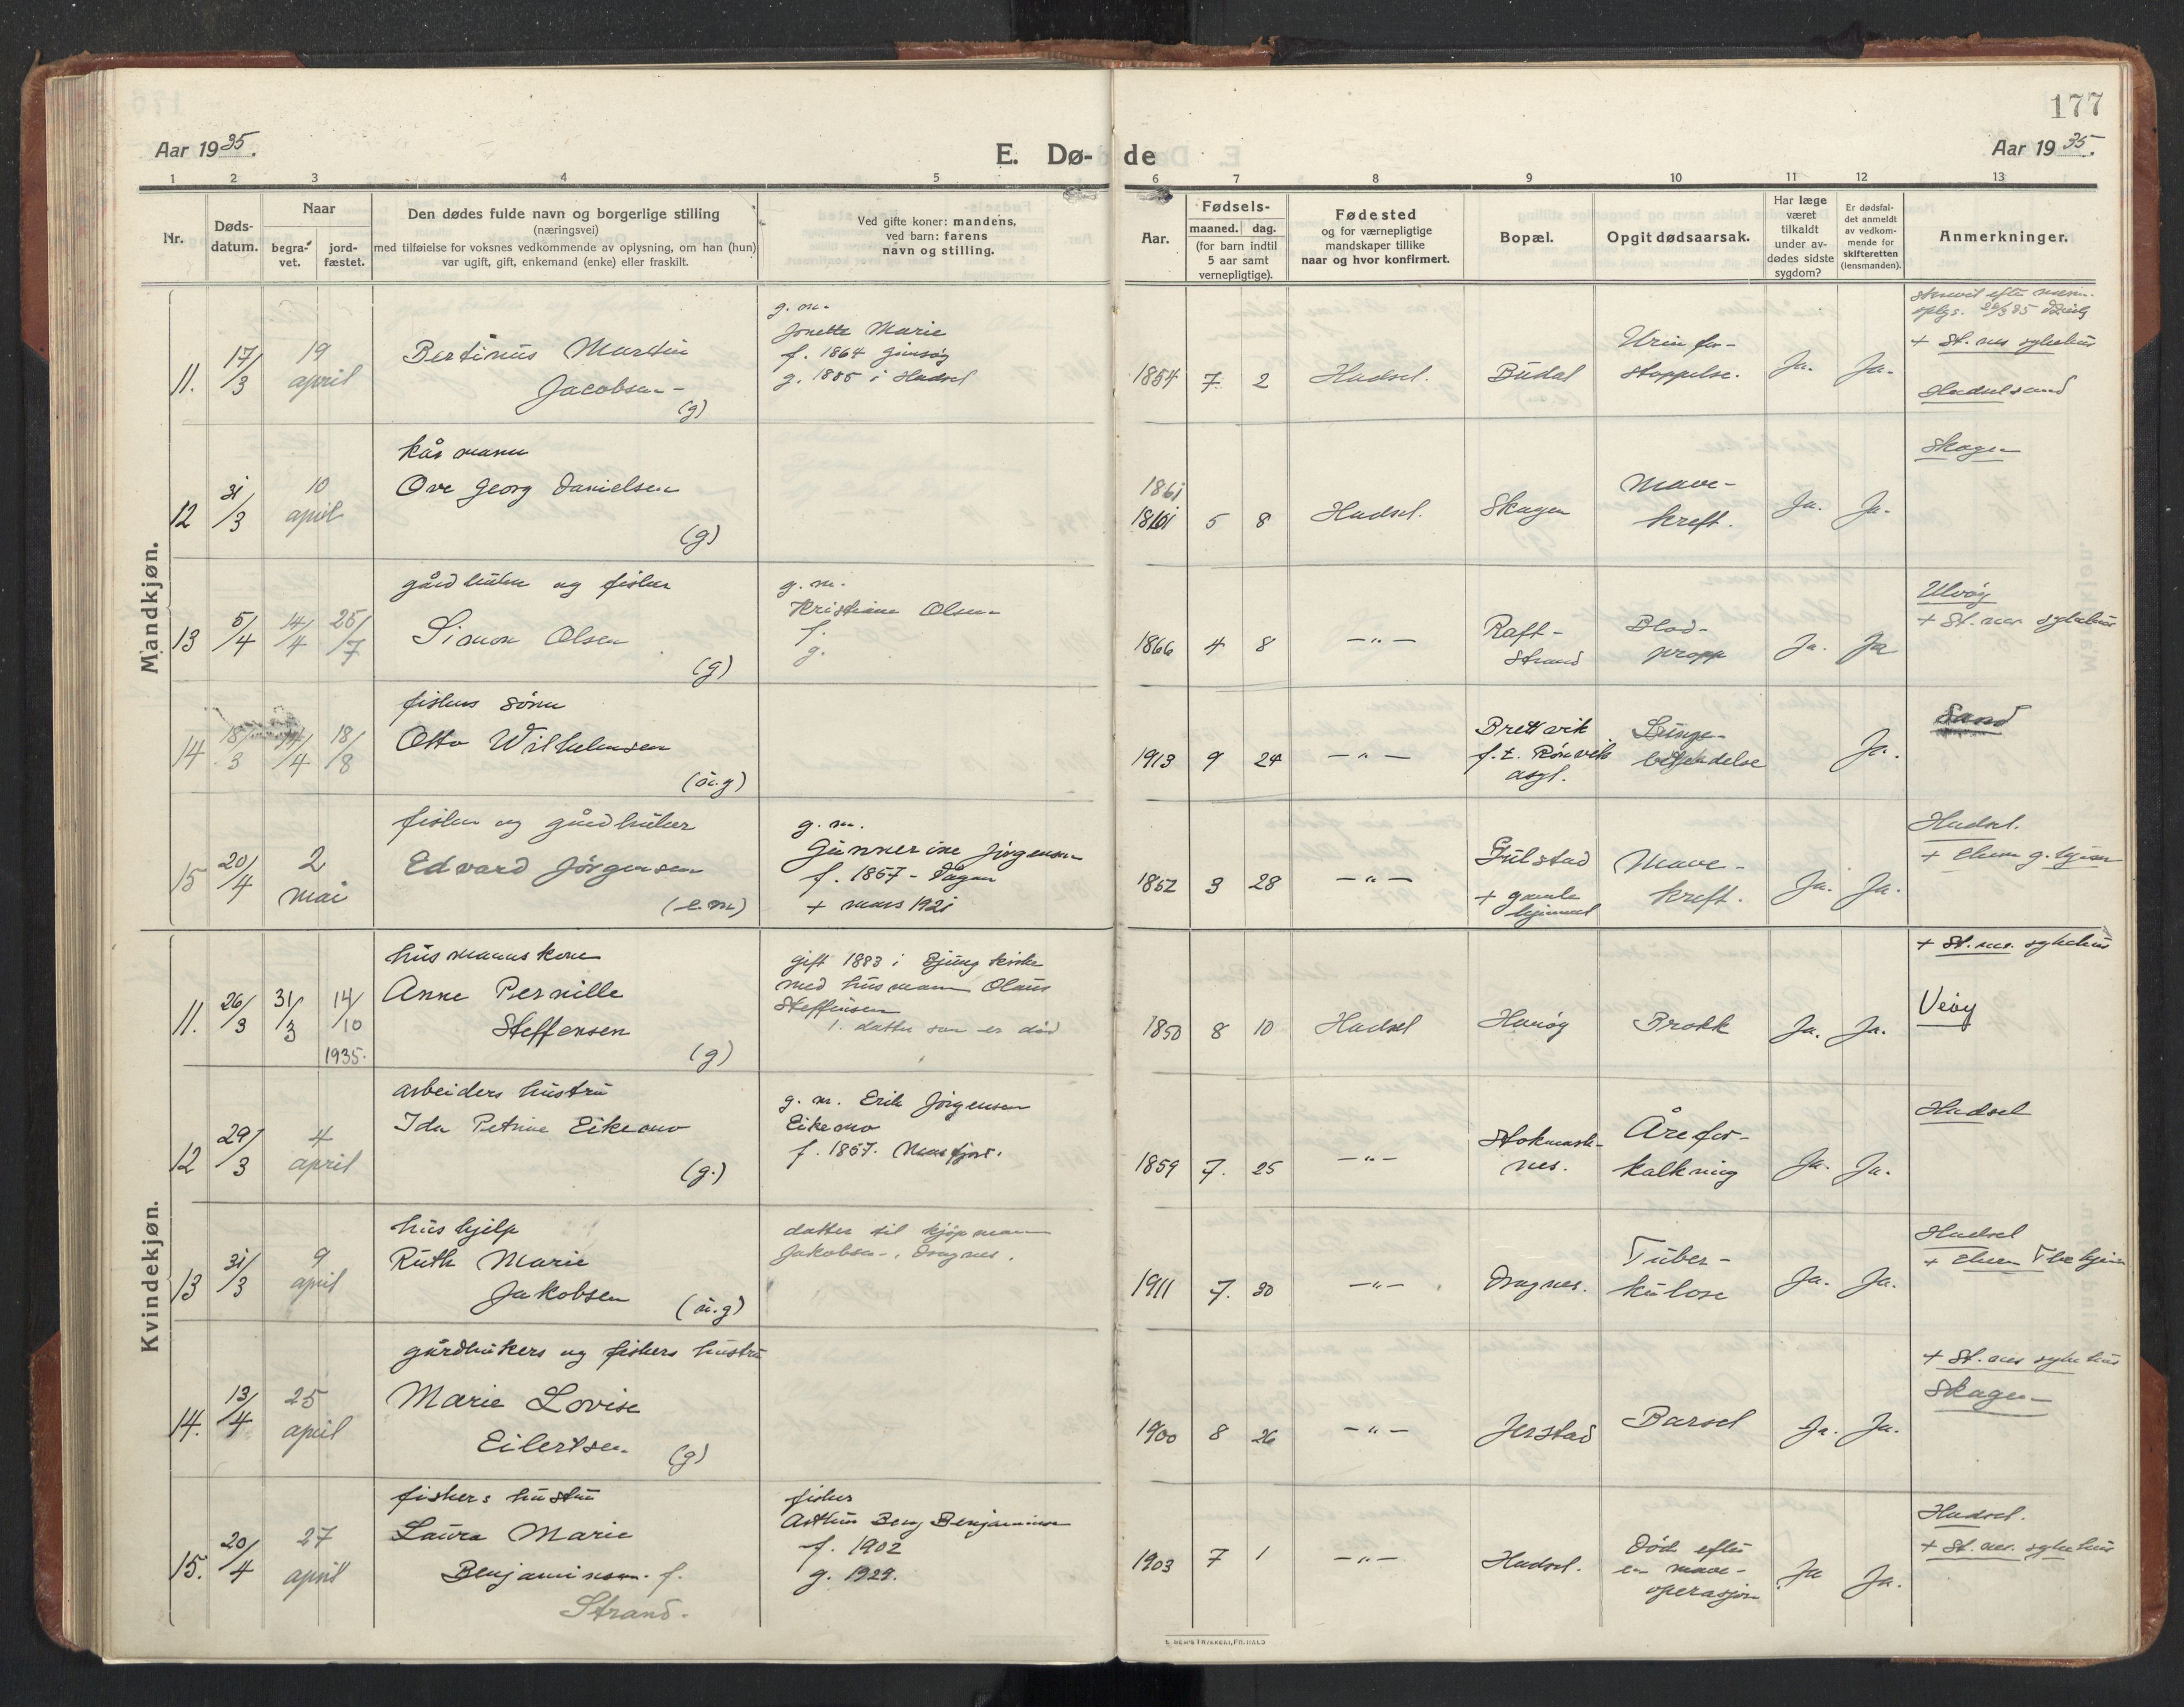 177
Aar 1935.
E. Dø- de
Aar 1935.
1 2 3 4 5 6 7 8 9 10 11 12 13
Nr.
Døds-
datum.
Naar
begra-
vet.
jord-
fæstet.
Den dødes fulde navn og borgerlige stilling
(næringsvei)
med tilføielse for voksnes vedkommende av oplysning, om han (hun)
var ugift, gift, enkemand (enke) eller fraskilt.
Ved gifte koner: mandens,
ved barn: farens
navn og stilling.
Aar.
Fødsels-
maaned. dag.
(for barn indtil
5 aar samt
vernepligtige).
Fødested
og for værnepligtige
mandskaper tillike
naar og hvor konfirmert.
Bopæl.
Opgit dødsaarsak.
Har læge
været
tilkaldt
under av-
dødes sidste
sygdom?
Er dødsfal-
det anmeldt
av vedkom-
mende for
skifteretten
(lensmanden).
Anmerkninger.
Mandkjøn.
11.
17/3
19
april
Bertinus Martin
Jacobsen
(g)
g. m.
Jonette Marie
f. 1864 Gimsøy
g. 1885 i Hadsel
1854 7. 2
Hadsel.
Budal
Urin for-
stoppelse.
Ja. Ja.
+ St. nes sykehus
Hadselsand
12
31/3
10
april
kårmann
Ove Georg Danielsen
(g)
1861
1861 5 8
Hadsel.
Skagen
Mave-
kreft.
Ja. Ja.
Skagen
13
5/4
14/4
25/7
gårdbruker og fisker
Simon Olsen
(g)
g. m.
Kristiane Olsen
f.
g.
1866 4 8
—"—
Raft-
strand
Blod-
propp
Ja. Ja
Ulvøy
+ St. nes. sykehus
14
18/3
14/4
18/8
fiskers sønn
Otto Wilhelmsen
(u.g)
1913 9 24
—"—
Brettvik
f.t. Rønvik
asyl.
Lunge-
betendelse
Ja.
Sand
15
20/4
2
mai
fisker og gårdbruker
Edvard Jørgensen
(e.m)
g. m.
Gunnerine Jørgensen
f. 1857 -
+ mars 1921
1852 3 28
—"—
Gulstad
+ gamle
hjemmet
Mave-
kreft.
Ja. Ja.
Hadsel.
Kvindekjøn.
11.
26/3
31/3
14/10
1935.
husmanns kone
Anne Pernille
Steffensen
(g)
gift 1883 i Bjung kirke
med husmann Olaus
Steffensen
1. datter som er død
1850 8 10
Hadsel
Hanøy
Brokk
Ja. Ja.
+ St. nes. sykehus
Veøy
12
29/3
4
april
arbeiders hustru
Ida Petrine Eikemo
(g.)
g. m. Erik Jørgensen
Eikemo
f. 1857.
1859 7. 25
—"—
Stokmark-
nes.
Årefor-
kalkning
Ja. Ja.
Hadsel
13
31/3
9
april
hushjelp
Ruth Marie
Jakobsen (u.g)
datter til kjøpmann
Jakobsen, Dragnes.
1911 7. 30
—"—
Dragnes.
Tuber-
kulose
Ja. Ja.
Hadsel
14.
13/4
25
april
gårdbrukers og fiskers hustru
Marie Lovise
Eilertsen (g)
1900 8 26
—"—
Jerstad
Barsel
Ja. Ja.
+ St. nes sykehus
Skagen
15.
20/4
27
april
fiskers hustru
Laura Marie
Benjaminsen. f.
Strand.
fisker
Arthur Berg Benjaminsen
f. 1902
g. 1929.
1903 7 1
—"—
Hadsel.
Død efter
en mave-
operasjon
Ja Ja.
Hadsel.
+ St. nes. sykehus